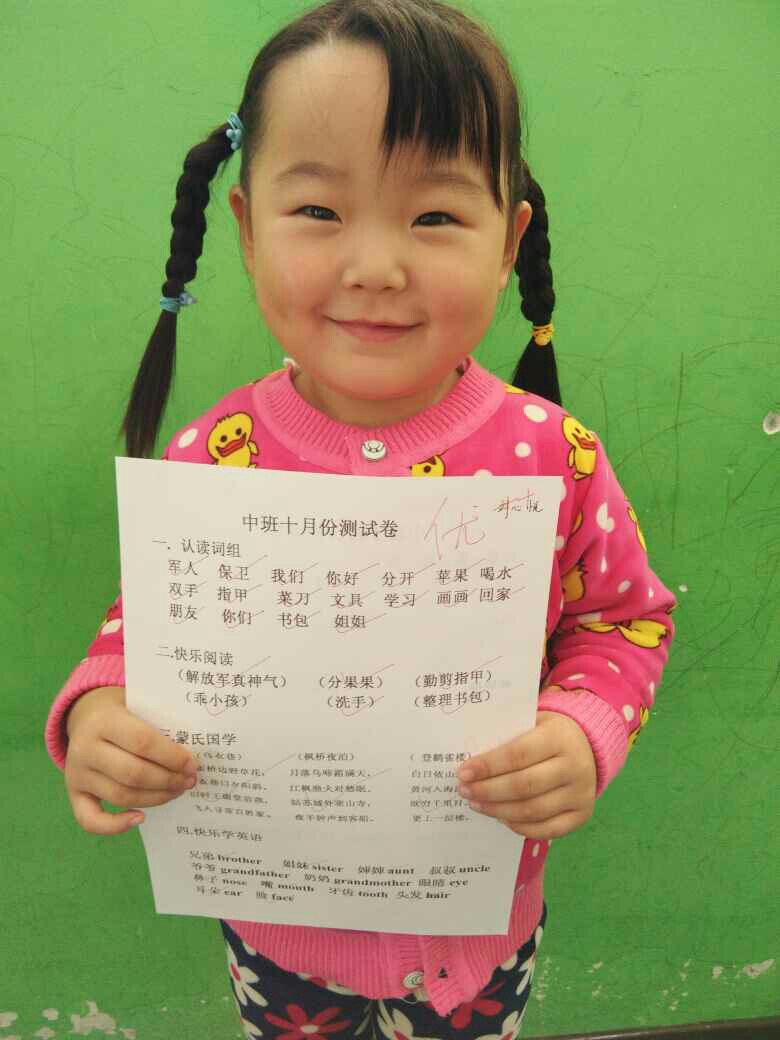 中班十月份测试卷 优
一．认读词组
军人 保卫 我们 你好 分开 苹果 喝水
双手 指甲 菜刀 文具 学习 画画 回家
朋友 你们 书包 姐姐
二.快乐阅读
（解放军真神气） （分果果） （勤剪指甲）
（乖小孩） （洗手） （整理书包）
三.蒙氏国学
（乌衣巷） （枫桥夜泊） （登鹳雀楼）
桥边野草花， 月落乌啼霜满天， 白日依山
衣巷口夕阳斜。 江枫渔火对愁眠。 黄河入海
旧时王谢堂前燕， 姑苏城外寒山寺， 欲穷千里目
飞入寻常百姓家。 夜半钟声到客船。 更上一层楼。
四.快乐学英语
兄弟 brother 姐妹 sister 婶婶 aunt 叔叔 uncle
爷爷 grandfather 奶奶 grandmother 眼睛 eye
鼻子 nose 嘴 mouth 牙齿 tooth 头发 hair
耳朵 ear 脸 face